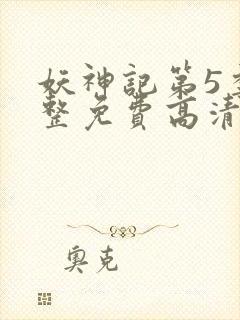 妖神記第5季
整免費高清
奧克